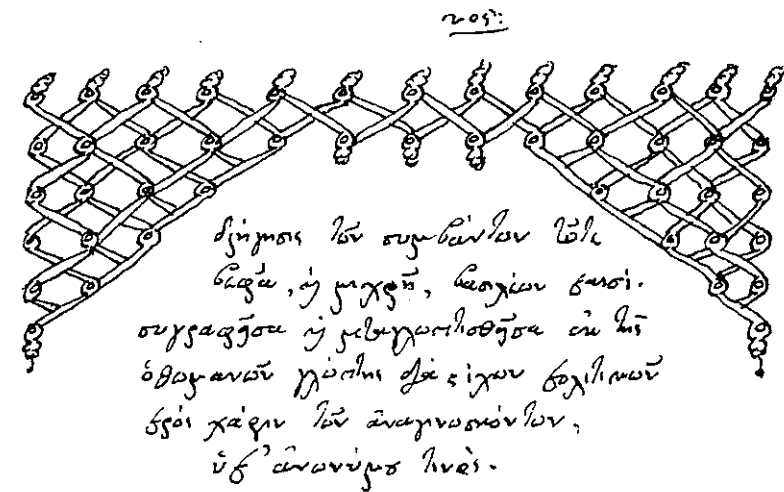 διήγησις τῶν συμβάντων τῶτε
βεφᾶ, ϗ μεχρῆ, βασιλέων παισί.
συγραφῆσα ϗ μεταγλωττισθῆσα ἐκ τῆς
ὀθωμανῶν γλώττης διὰ στίχων πολιτικῶν
πρὸς χάριν τῶν ἀναγινωσκόντων,
ὑπ' ἀνωνύμου τινὸς.